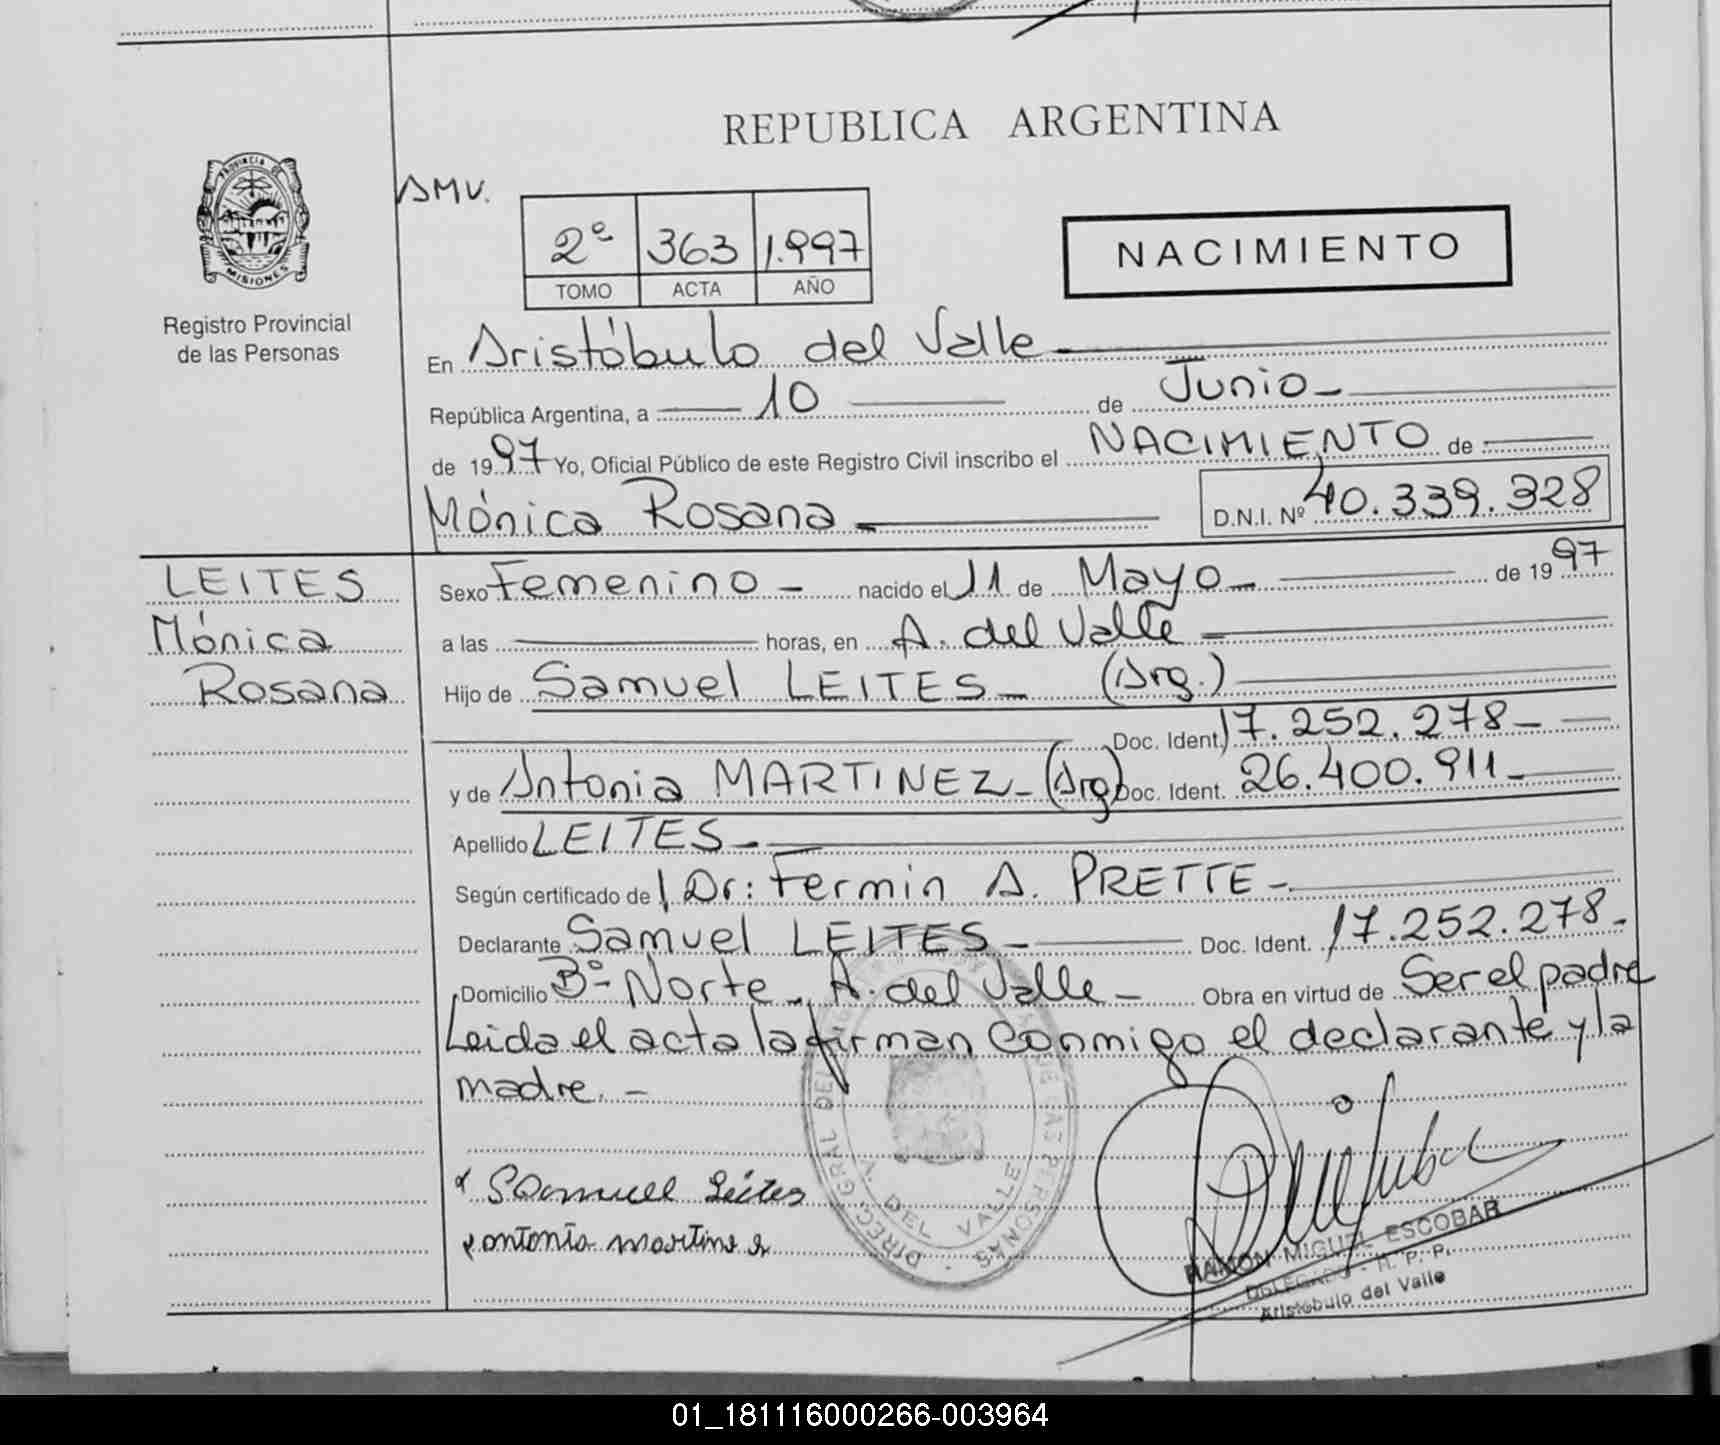 REPUBLICA ARGENTINA
PROVINCIA DE
MISIONES
Registro Provincial
de las Personas
AMV.
2º 363 1.997
TOMO ACTA AÑO
NACIMIENTO
En Aristóbulo del Valle
República Argentina, a 10 de Junio
de 1997 Yo, Oficial Público de este Registro Civil inscribo el NACIMIENTO de
Mónica Rosana D.N.I. Nº 40.339.328
LEITES
Mónica
Rosana
Sexo Femenino - nacido el 11 de Mayo de 1997
a las horas, en A. del Valle
Hijo de Samuel LEITES (Arg.)
Doc. Ident. 17.252.278
y de Antonia MARTINEZ (Arg) Doc. Ident. 26.400.911
Apellido LEITES
Según certificado de Dr: Fermin A. PRETTE
Declarante Samuel LEITES Doc. Ident. 17.252.278
Domicilio Bº Norte A. del Valle Obra en virtud de Ser el padre
Leida el acta la firman conmigo el declarante y la
madre. -
Samuell Leites
antonia martine z
DIREC. GRAL DEL DE LAS PERSONAS
A. DEL VALLE
RAMON MIGUEL ESCOBAR
DELEGADO - R. P. P.
Aristobulo del Valle
01_181116000266-003964